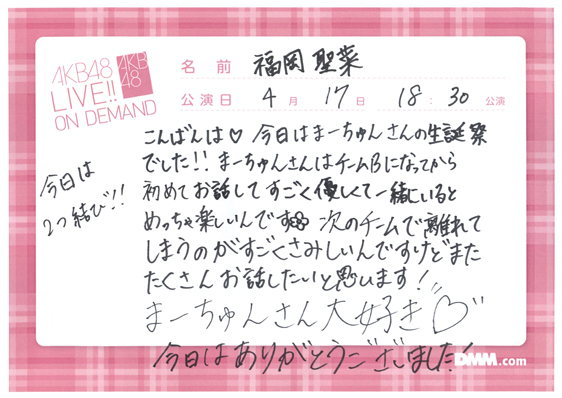 AKB48
LIVE!!
ON DEMAND
AKB
48
名前 福岡 聖菜
公演日 4月 17日 18:30 公演
今日は
2つ結び!!
こんばんは♡ 今日はまーちゅんさんの生誕祭
でした!! まーちゅんさんはチームBになってから
初めてお話してすごく優しくて一緒にいると
めっちゃ楽しいんです 次のチームで離れて
しまうのがすごくさみしいんですけどまた
たくさんお話したいと思います!
まーちゅんさん大好き♡
今日はありがとうございました!
DMM.com